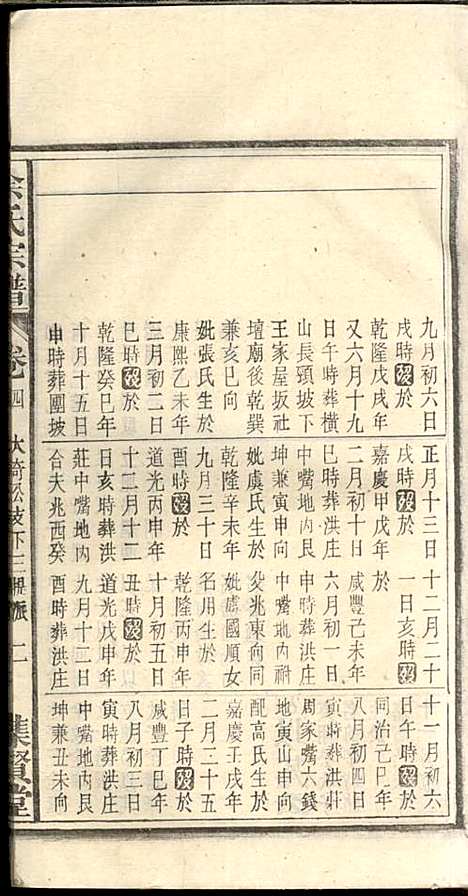 九月初六日
戌時歿於
乾隆戊戌年
又六月十九
日午時葬橫
山長頸坡下
王家屋坂社
壇廟後乾巽
兼亥巳向
妣張氏生於
康熙乙未年
三月初二日
巳時歿於
乾隆癸巳年
十月十五日
申時葬團坡
正月十三日
戌時歿於
嘉慶甲戌年
二月初十日
巳時葬洪庄
中嘴地內艮
坤兼寅申向
妣虞氏生於
乾隆辛未年
九月三十日
酉時歿於
道光丙申年
十二月十二
日亥時葬洪
莊中嘴地內
合夫兆酉癸
十二月二十
一日亥時歿
於
咸豐己未年
六月初一日
申時葬洪庄
中嘴地內祔
父兆東向同
妣應國順女
名用生於
乾隆丙申年
十月初五日
丑時歿於
道光戊申年
九月十二日
酉時葬洪庄
十一月初六
日午時歿於
同治己巳年
八月初四日
寅時葬洪莊
周家嘴六錢
地寅山申向
配高氏生於
嘉慶壬戌年
二月二十五
日子時歿於
咸豐丁巳年
八月初三日
寅時葬洪庄
中嘴地內艮
坤兼丑未向
余氏宗譜
卷四
二
集賢堂